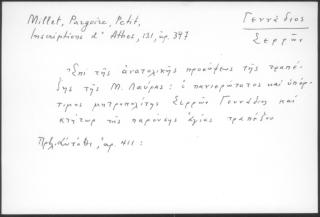 Millet, Pargoire, Petit,
Inscriptions d'Athos, 131, ἀρ. 397
Γεννάδιος
Σερρῶν
Ἐπὶ τῆς ἀνατολικῆς προσόψεως τῆς τραπέ-
ζης τῆς Μ. Λαύρας: ὁ πανιερώτατος καὶ ὑπέρ-
τιμος μητροπολίτης Σερρῶν Γεννάδιος καὶ
κτήτωρ τῆς παρούσης ἁγίας τραπέζης
ἀρ. 411 :